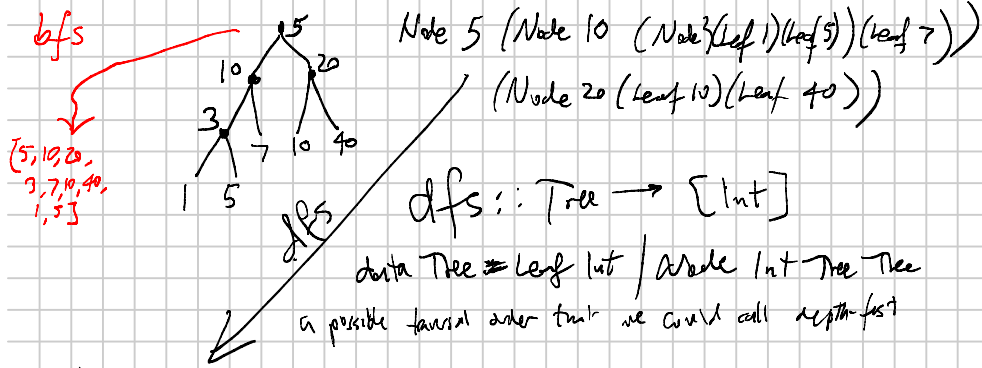 bfs
5
10 20
3 7 10 40
1 5
[5, 10, 20,
3, 7, 10, 40,
1, 5]
dfs
Node 5 (Node 10 (Node 3 (Leaf 1) (Leaf 5)) (Leaf 7))
(Node 20 (Leaf 10) (Leaf 40))
dfs :: Tree → [Int]
data Tree = Leaf Int | Node Int Tree Tree
a possible traversal order that we could call depth-first